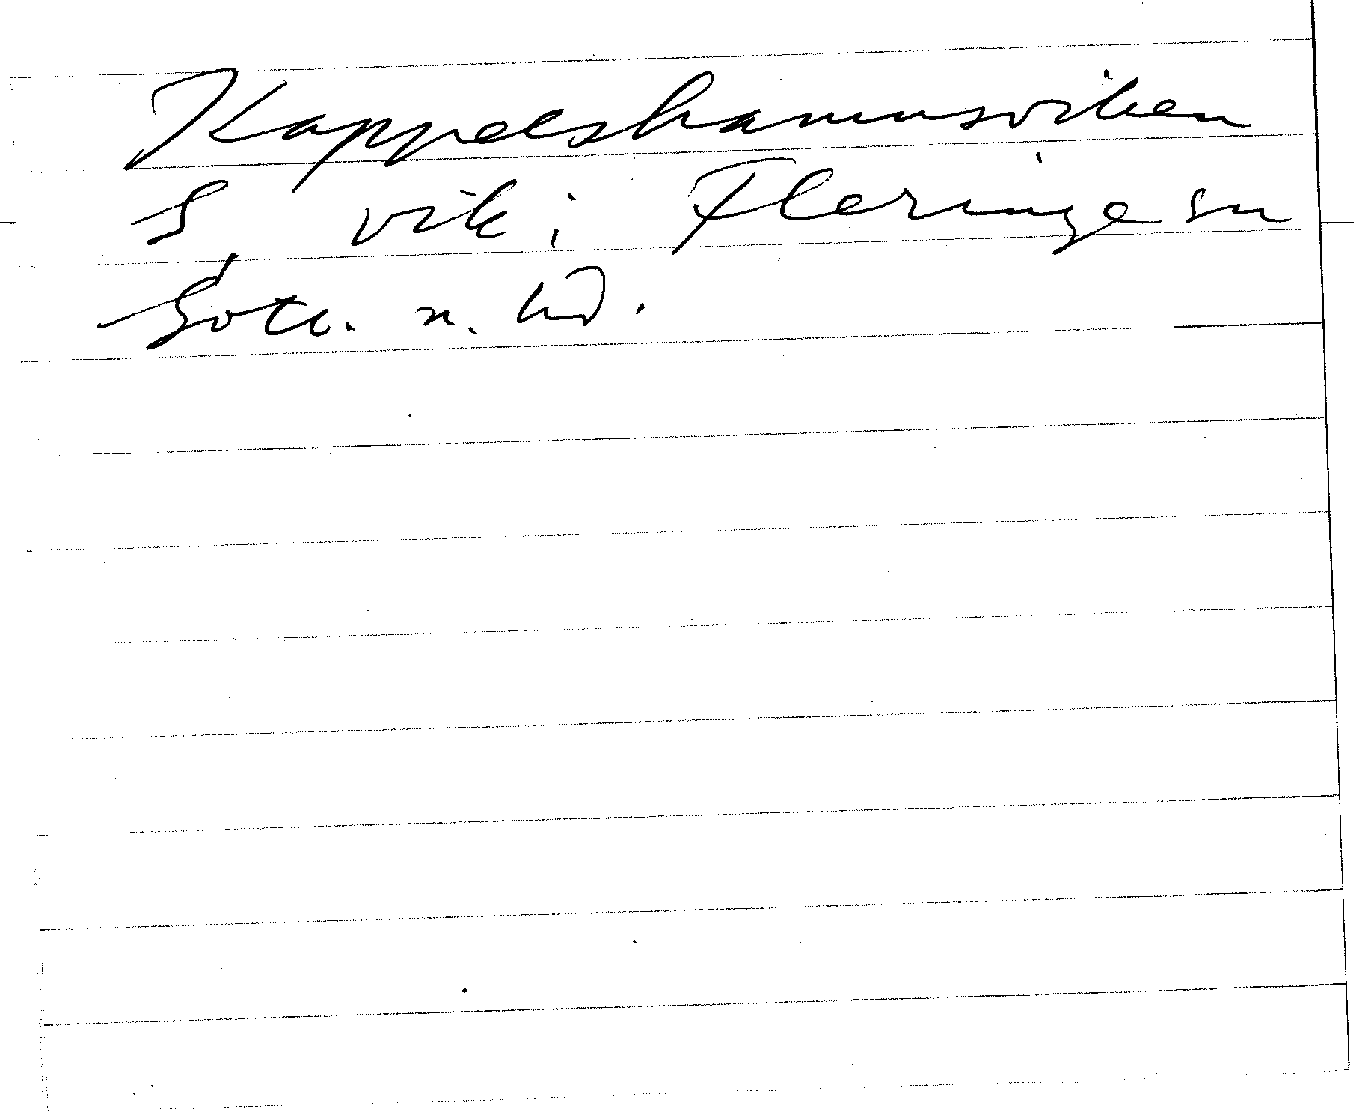 Kappelshamnsviken
S, vik i Fleringe sn
Gotl. n. hd.